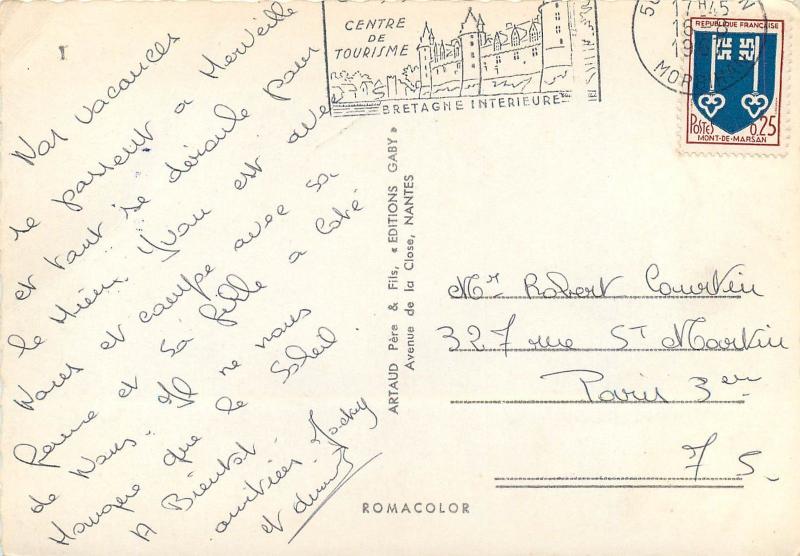 CENTRE
DE
TOURISME
BRETAGNE INTERIEURE
17H45
MORBIHAN
REPUBLIQUE FRANÇAISE
POSTE 0,25
MONT-DE-MARSAN
Nos vacances
se passent a Merveille
et tout se déroule pour
le Mieux. Yvan est avec
Nous et campe avec sa
femme et sa fille a Coté
de Nous. Il ne nous
Manque que le Soleil.
A Bientot.
amitiées Jacky
et
ARTAUD Père & Fils, « EDITIONS GABY »
Avenue de la Close, NANTES
Mr Robert Courtin
327 rue ST Martin
Paris 3em
75.
ROMACOLOR